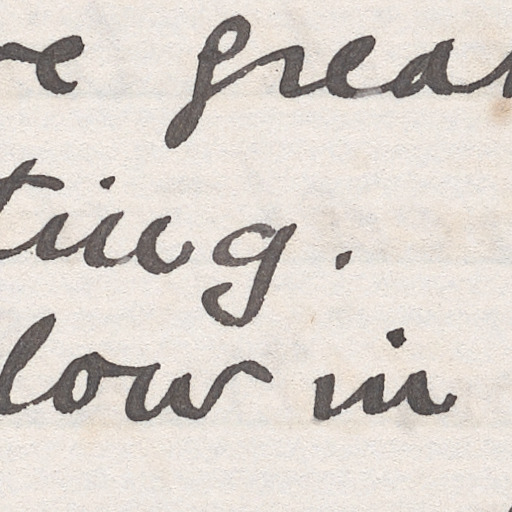 re grea
ting.
low in